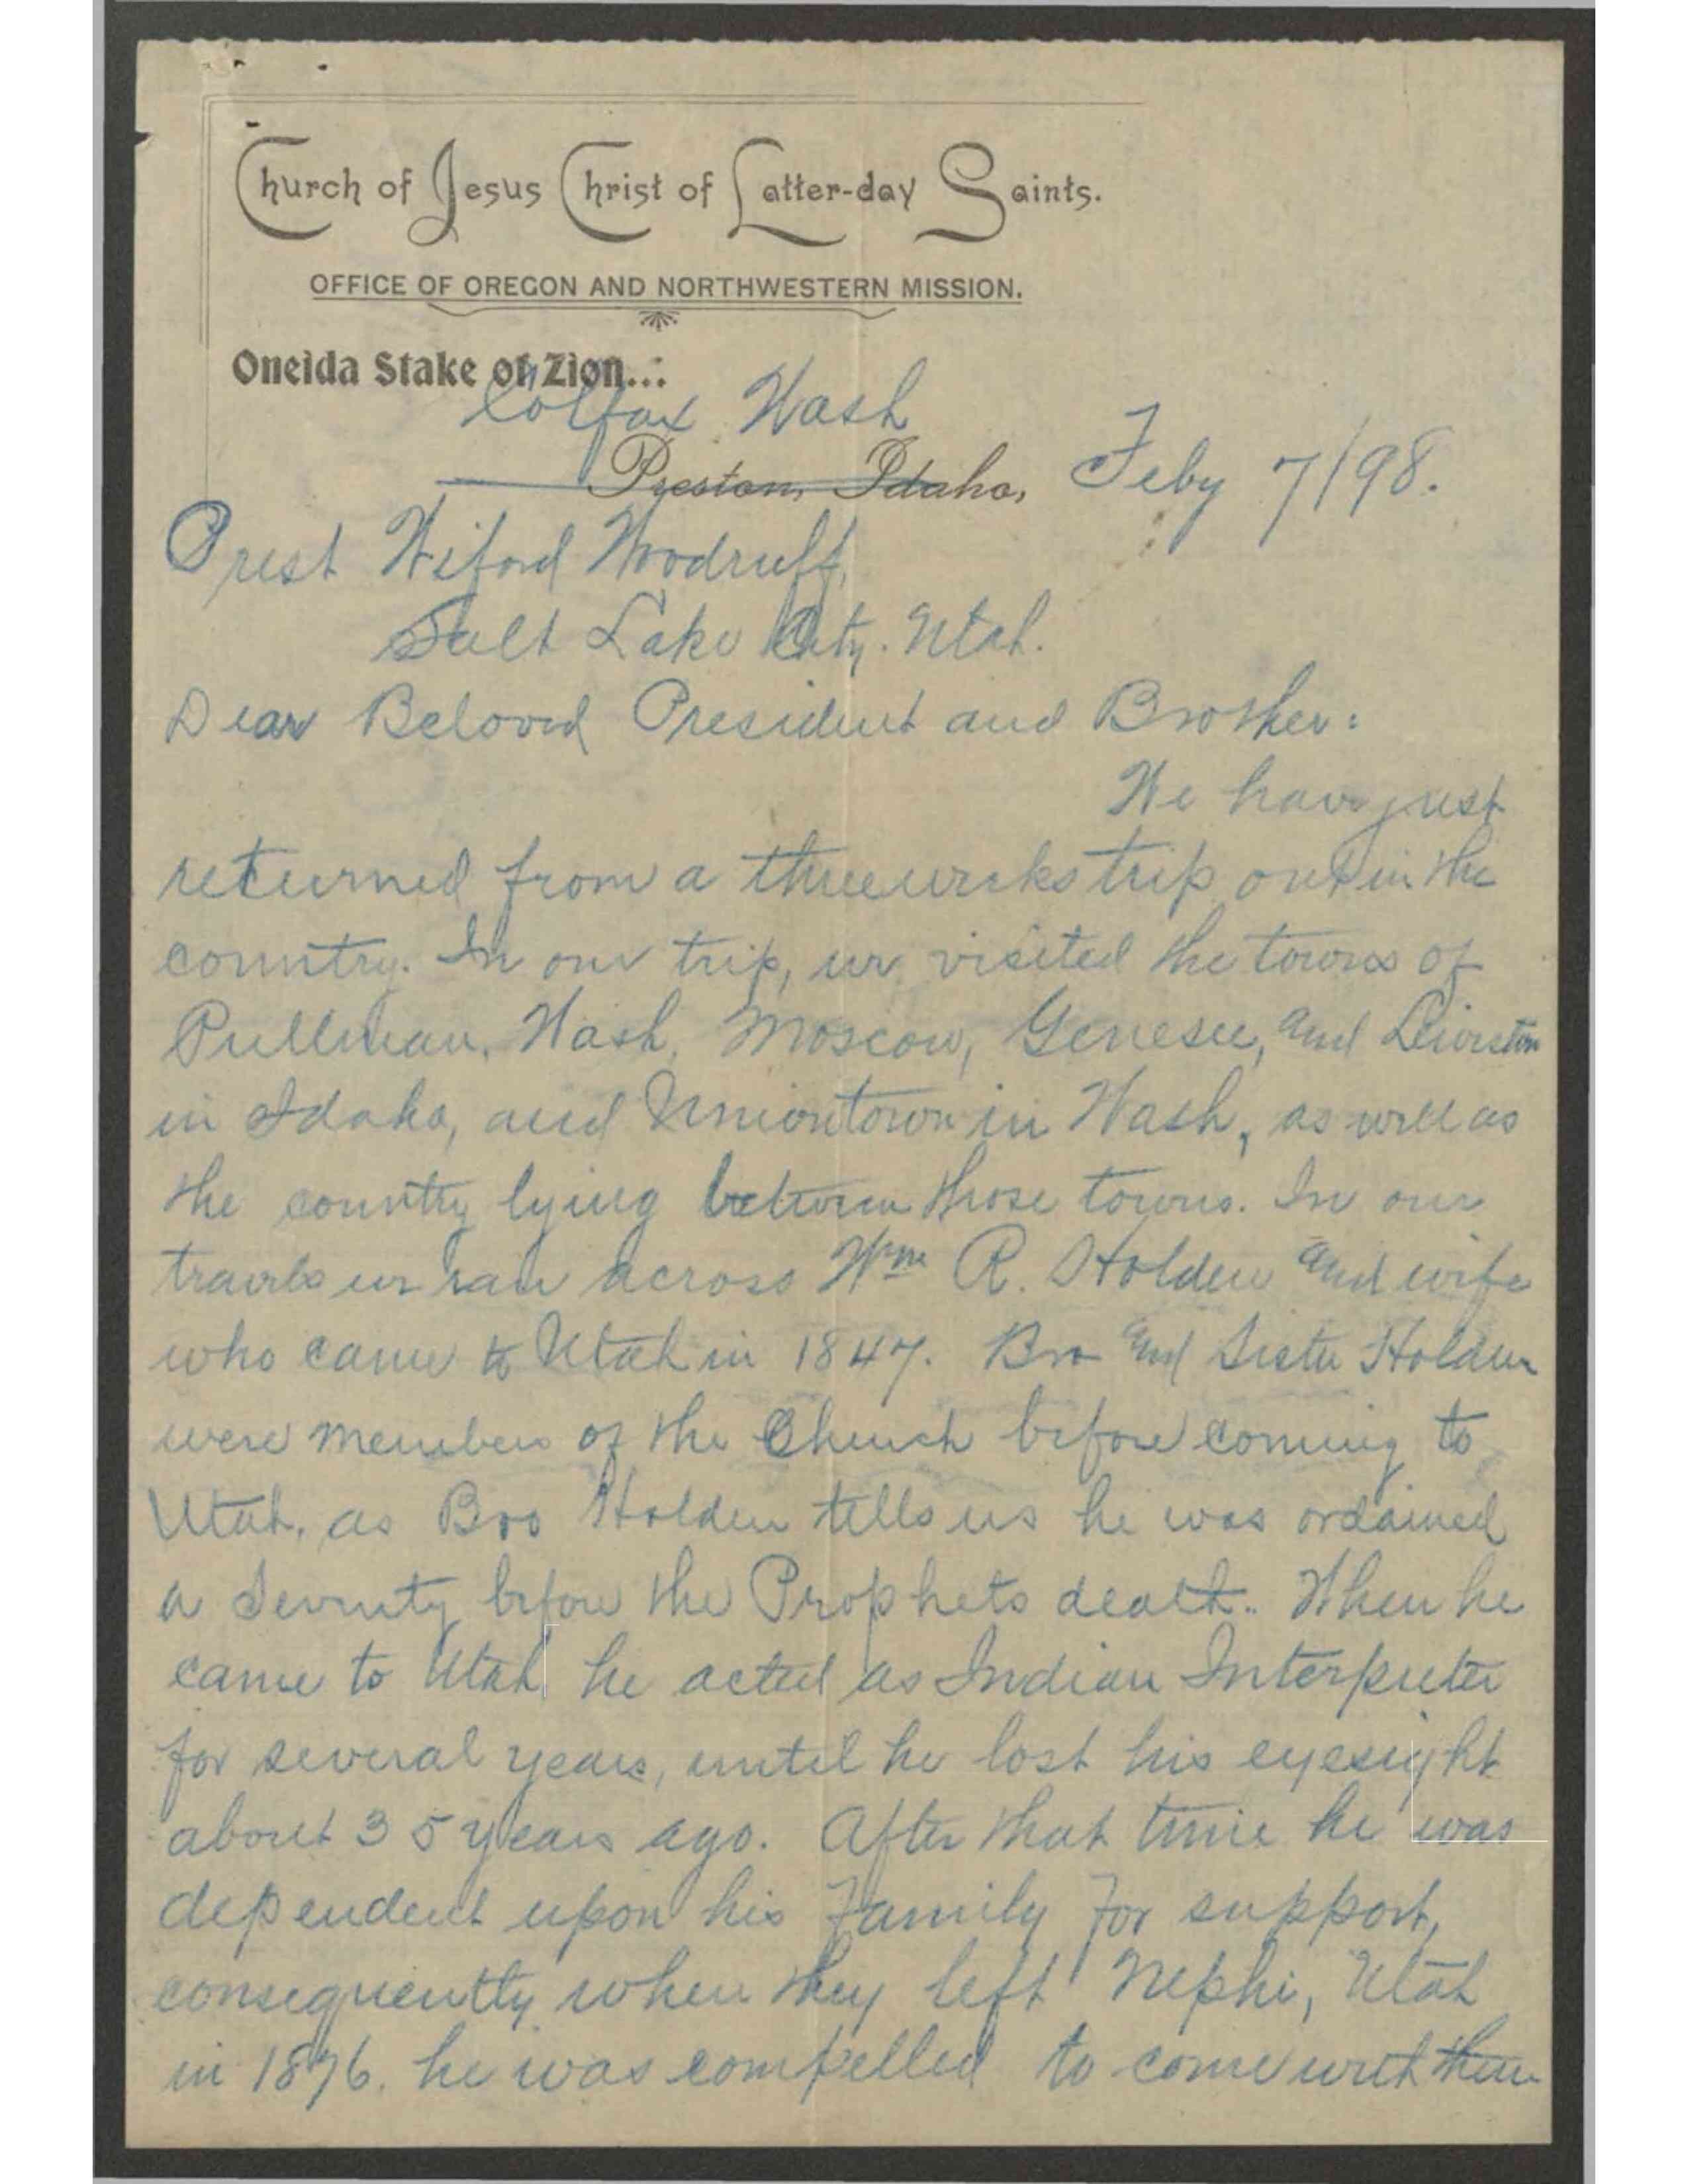 Church of Jesus Christ of Latter-day Saints.
OFFICE OF OREGON AND NORTHWESTERN MISSION.
Oneida Stake of Zion...
Colfax Wash
Preston, Idaho, Feby 7/98.
Prest Wiford Woodruff,
Salt Lake City. Utah.
Dear Beloved President and Brother:
We have just
returned from a three weeks trip out in the
country. In our trip, we visited the towns of
Pullman, Wash, Moscow, Genesee, and Lewiston
in Idaho, and Uniontown in Wash, as well as
the country lying between those towns. In our
travels we ran across Wm R. Holden and wife
who came to Utah in 1847. Bro and Sister Holden
were members of the Church before coming to
Utah, as Bro Holden tells us he was ordained
a Seventy before the Prophets death. When he
came to Utah he acted as Indian Interpreter
for several years, until he lost his eyesight
about 35 years ago. After that time he was
dependent upon his family for support,
consequently when they left Nephi, Utah
in 1876. he was compelled to come with them